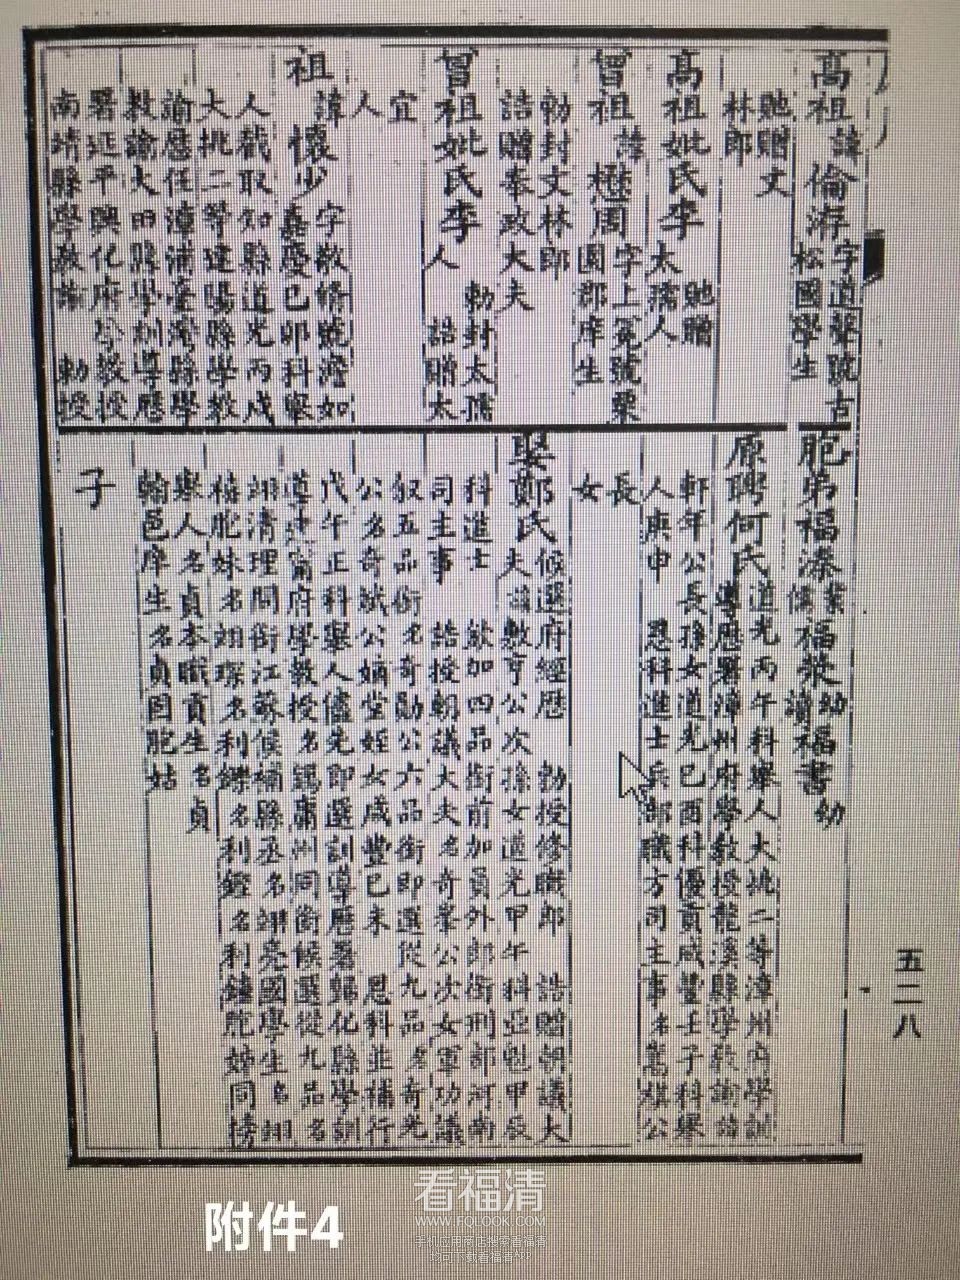 高祖諱倫游字道聲號古
松國學生
貤贈文
林郎
高祖妣氏李 貤贈
太孺人
曾祖諱懋周字上冕號粟
園郡庠生
勅封文林郎
誥贈奉政大夫
曾祖妣氏李 勅封太孺
人 誥贈太
宜
人
祖諱懷少字敬脩號澹如
嘉慶己卯科舉
人截取知縣道光丙戌
大挑二等建陽縣學教
諭歷任漳浦臺灣縣學
教諭大田縣學訓導歷
署延平興化府學教授
南靖縣學教諭 勅授
胞弟福溱業儒福棨幼讀福書幼
原聘何氏道光丙午科舉人大挑二等漳州府學訓
導歷署漳州府學教授龍溪縣學教諭諱
軒年公長孫女道光己酉科優貢咸豐壬子科舉
人庚申 恩科進士兵部職方司主事名騏公
長
女
娶鄭氏候選府經歷 勅授修職郎 誥贈朝議大
夫諱敷亨公次孫女道光甲午科亞魁甲辰
科進士 欽加四品銜前加員外郎銜刑部河南
司主事 誥授朝議大夫名奇峯公次女軍功議
敘五品銜名奇勛公六品銜即選從九品名奇光
公名奇斌公嫡堂姪女咸豐己未 恩科並補行
戊午正科舉人儘先即選訓導歷署歸化縣學訓
導建甯府學教授名錫庸州同銜候選從九品名
翊清理問銜江蘇候補縣丞名翊亮國學生名翊
禧胞妹名翊琛名利鑠名利鏗名利鍾胞姊同榜
舉人名貞本職貢生名貞
翰邑庠生名貞固胞姑
子
五二八
附件4
看福清
WWW.FQLOOK.COM
手机应用商店搜索看福清
均可下载看福清APP